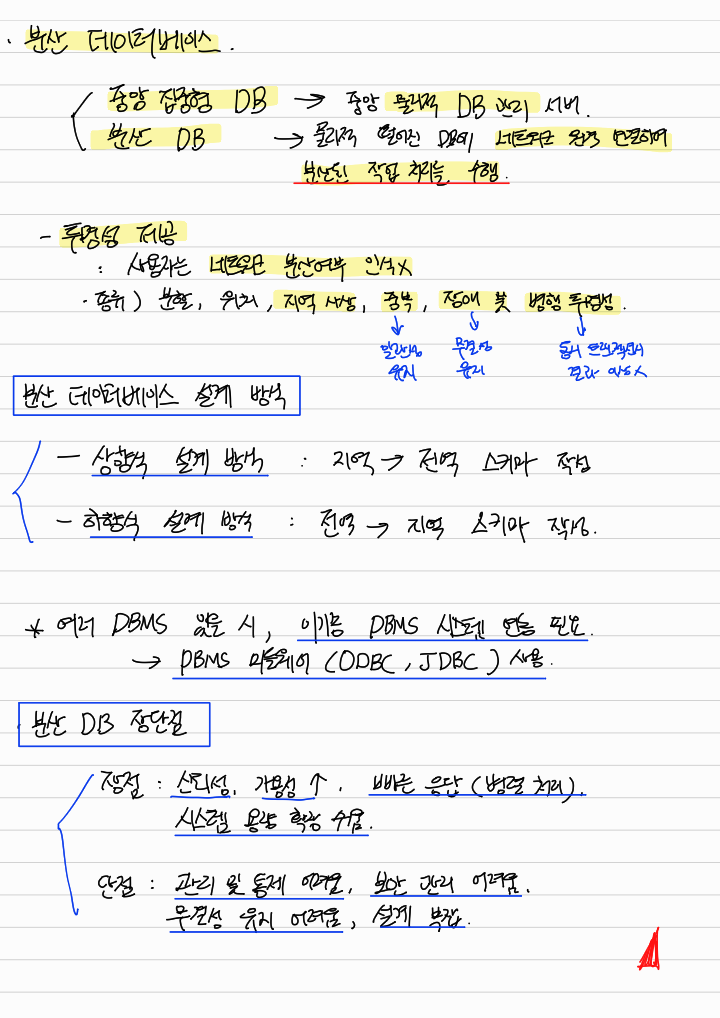 · 분산 데이터베이스.
중앙 집중형 DB → 중앙 물리적 DB 관리 서버.
분산 DB → 물리적 떨어진 DB에 네트워크 원격 연결하여
분산된 작업 처리를 수행.
- 투명성 제공
: 사용자는 네트워크 분산여부 인식 X
· 종류) 분할, 위치, 지역 사상, 중복, 장애 및 병행 투명성.
↓ ↓ ↓
일관성 무결성 동시 트랜잭션시
유지 유지 결과 이상 X
분산 데이터베이스 설계 방식
- 상향식 설계 방식 : 지역 → 전역 스키마 작성
- 하향식 설계 방식 : 전역 → 지역 스키마 작성.
* 여러 DBMS 있을 시, 이기종 DBMS 시스템 연동 필요.
→ DBMS 미들웨어 (ODBC, JDBC) 사용.
분산 DB 장단점
장점 : 신뢰성, 가용성 ↑, 빠른 응답 (병렬 처리),
시스템 용량 확장 쉬움.
단점 : 관리 및 통제 어려움, 보안 관리 어려움,
무결성 유지 어려움, 설계 복잡.